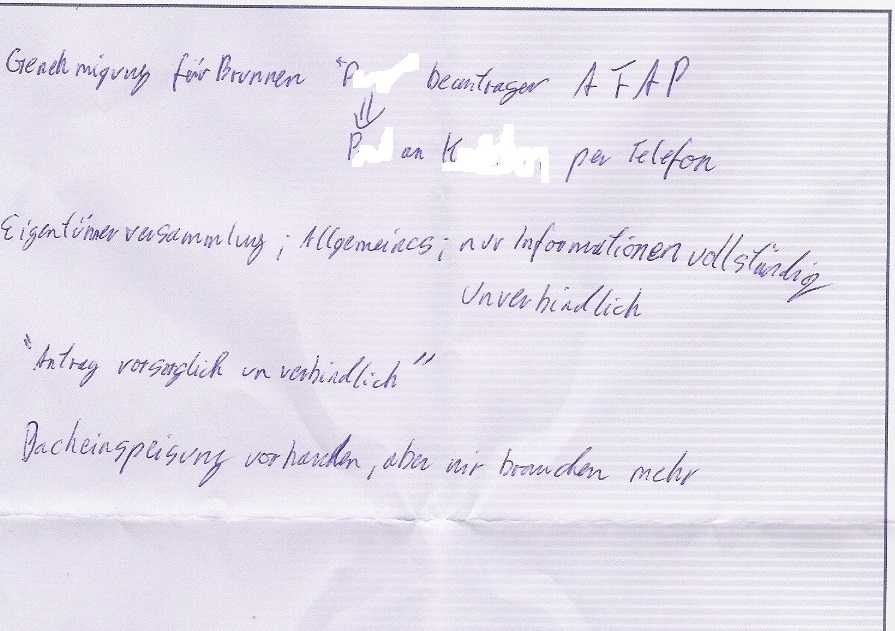 Genehmigung für Brunnen "P beantragen AFAP
⇓
P an K per Telefon
Eigentümerversammlung; Allgemeines; nur Informationen vollständig
unverbindlich
"Antrag vorsorglich unverbindlich"
Bacheinspeisung vorhanden, aber wir brauchen mehr